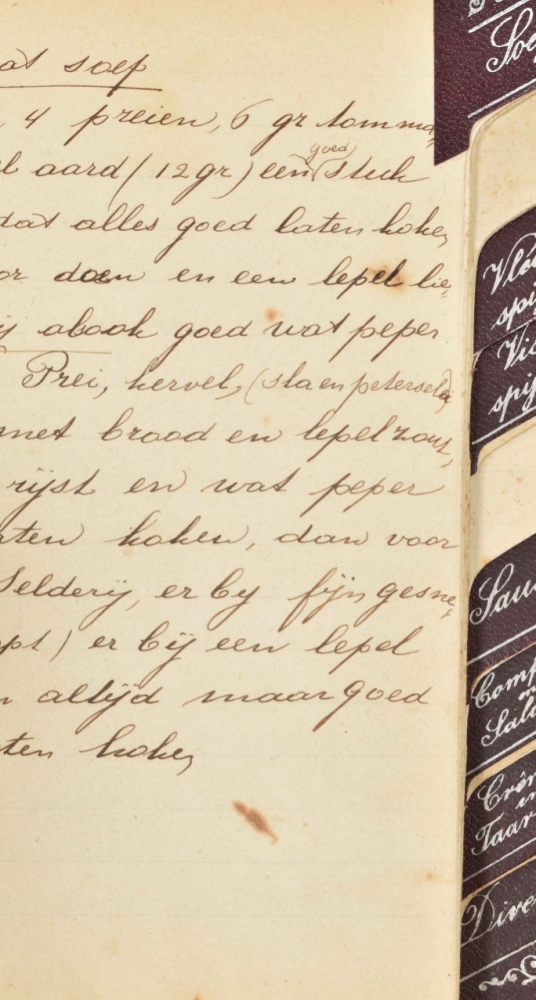 at soep
4 preien, 6 gr tomma
aard (12gr) een goed stuk
dat alles goed laten koke,
or doen en een lepel lie,
ij alsook goed wat peper
Prei, kervel, (sla en peterselie)
met brood en lepel zout,
rijst en wat peper
aten koken, dan voor
Selderij, er by fijn gesne,
pt) er bij een lepel
n altijd maar goed
ten koke,
Soe
Vlee
spij
Vis
spij
Sau
Comp
en
Sala
Crêm
en
Taar
Dive